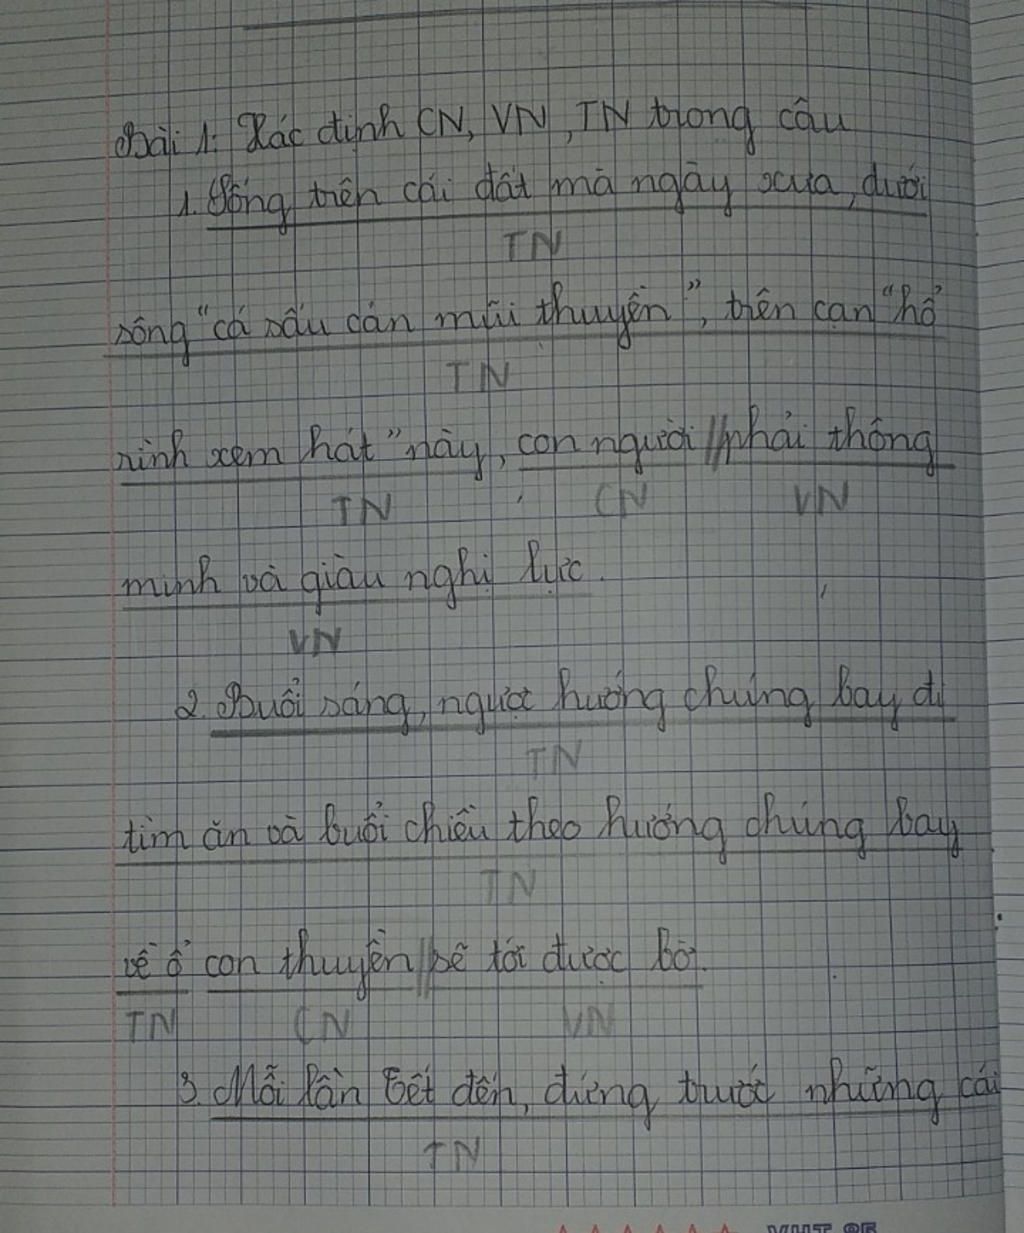 Bài 1: Xác định CN, VN, TN trong câu
1. Sống trên cái đất mà ngày xưa, dưới
TN
sông "cá sấu cản mũi thuyền", trên cạn "hổ
TN
rình xem hát" này, con người // phải thông
TN CN VN
minh và giàu nghị lực.
VN
2. Buổi sáng, ngược hướng chúng bay đi
TN
tìm ăn và buổi chiều theo hướng chúng bay
TN
về ổ con thuyền // sẽ tới được bờ.
TN CN VN
3. Mỗi lần Tết đến, đứng trước những cái
TN